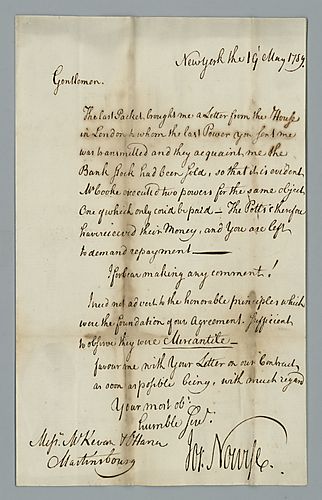 New York the 19 May 1789.
Gentlemen.
The last Packet brought me a Letter from the House
in London to whom the last Power you sent me
was transmitted and they acquaint me the
Bank Stock had been sold, so that it is evident
Mr Cooke executed two powers for the same object
One of which only could be paid — The Potts's therefore
have received their Money, and You are left
to demand repayment —
I forbear making any comment!
I need not advert to the honorable principles which
were the foundation of our Agreement. Sufficient
to observe they were Mercantile —
favour me with Your Letter on our Contract
as soon as possible being, with much regard
Your most obt
humble Servt.
Jos. Nourse.
Messrs McKevan O'Hara
Martinsbourg